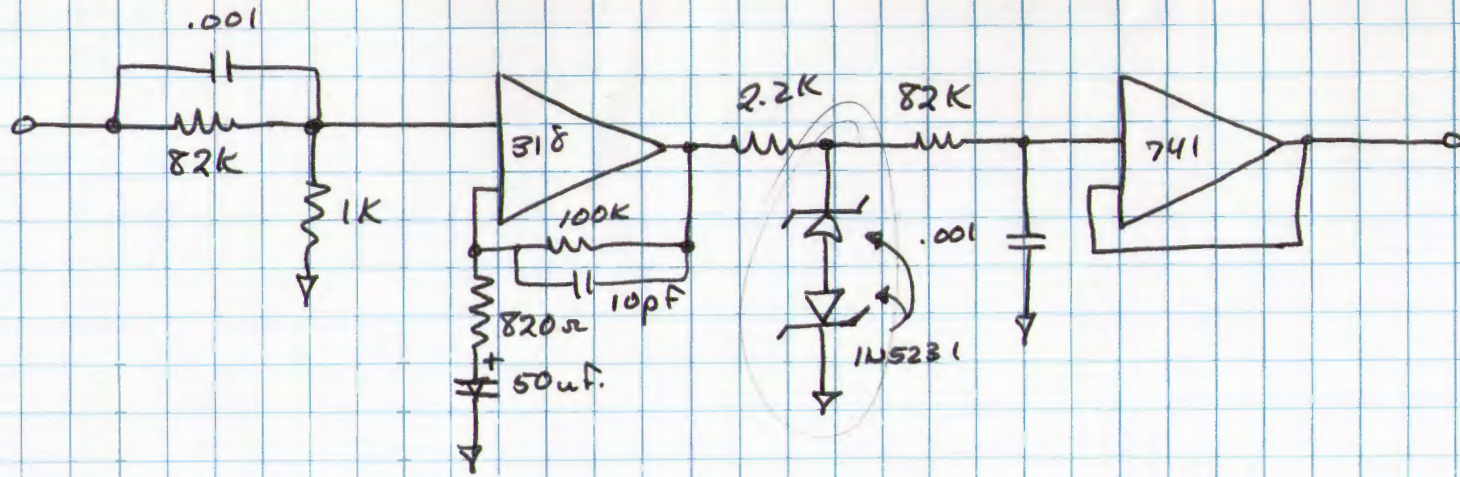 .001
82K
1K
318
100K
10pF
820Ω
+
50uf.
2.2K
82K
1N5231
.001
741